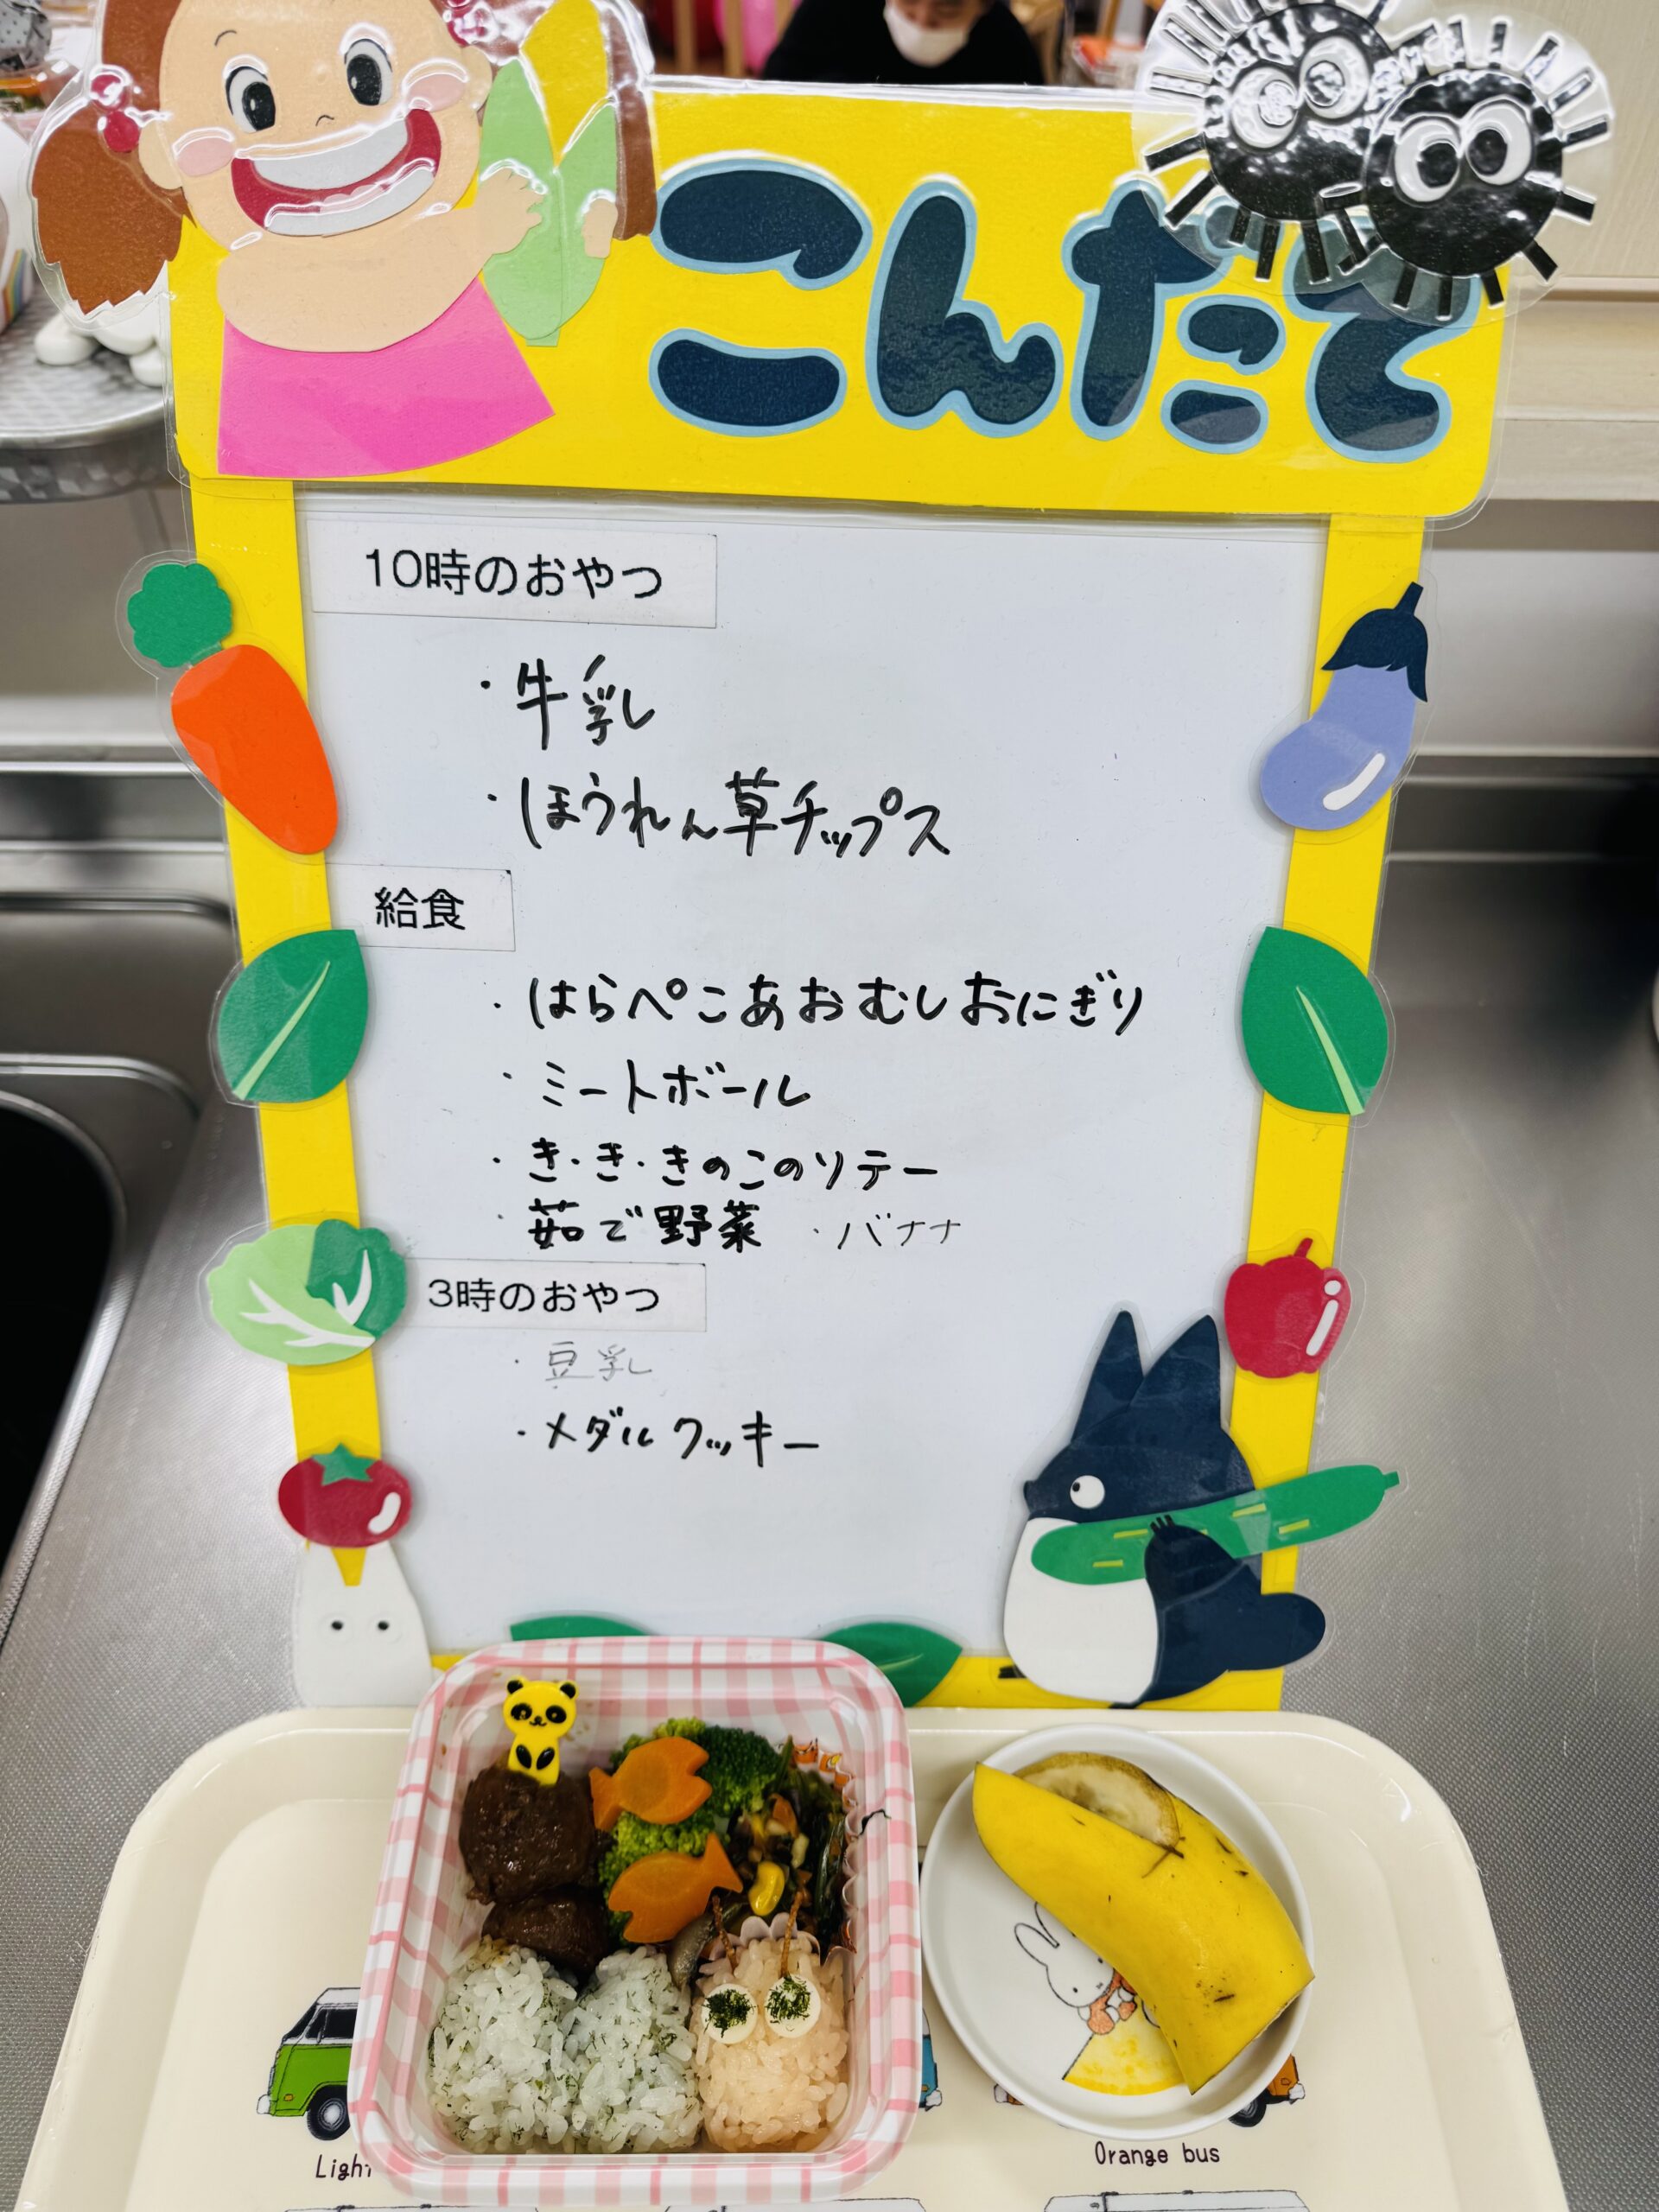 こんだて
10時のおやつ
・牛乳
・ほうれん草チップス
給食
・はらぺこあおむしおにぎり
・ミートボール
・き・き・きのこのソテー
・茹で野菜 ・バナナ
3時のおやつ
・豆乳
・メダルクッキー
Light
Orange bus